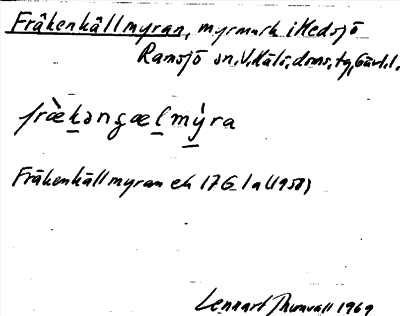 Fräkenkällmyran, myrmark i Hedsjö
Ramsjö sn, V. Häls. doms. tg, Gävl. l.
fræ̀kəngælmỳra
Fräkenkällmyran ek 17G 1a (1958)
Lennart Thunvall 1969